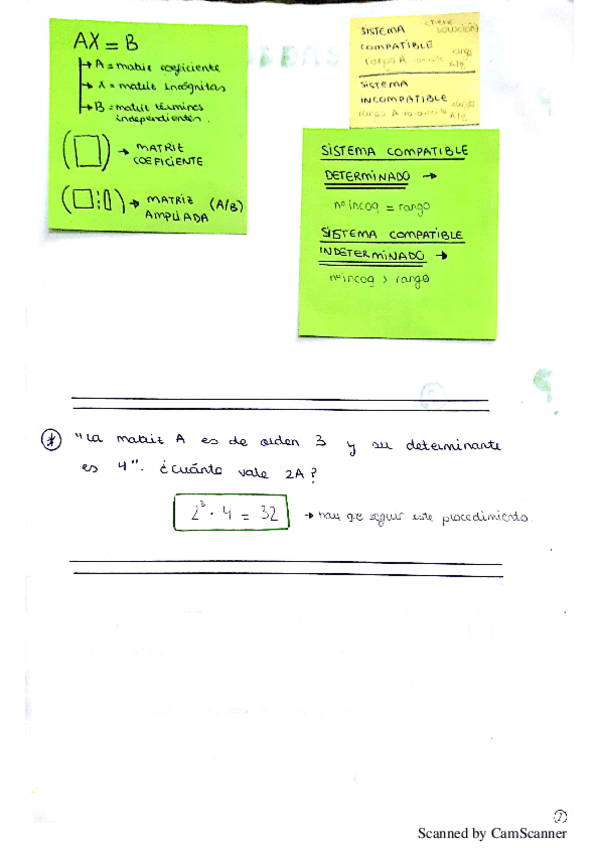 AX = B
→ A = matriz coeficiente
→ X = matriz incógnitas
→ B = matriz términos
independientes.
(□) → MATRIZ
COEFICIENTE
(□¦▯) → MATRIZ (A/B)
AMPLIADA
SISTEMA (tiene
COMPATIBLE solución)
rango A rang
A/B
SISTEMA
INCOMPATIBLE rango
rango A A/B
SISTEMA COMPATIBLE
DETERMINADO →
nº incog = rango
SISTEMA COMPATIBLE
INDETERMINADO →
nº incog > rango
* "La matriz A es de orden 3 y su determinante
es 4". ¿Cuánto vale 2A?
2³ · 4 = 32 → hay qe seguir este procedimiento.
2
Scanned by CamScanner